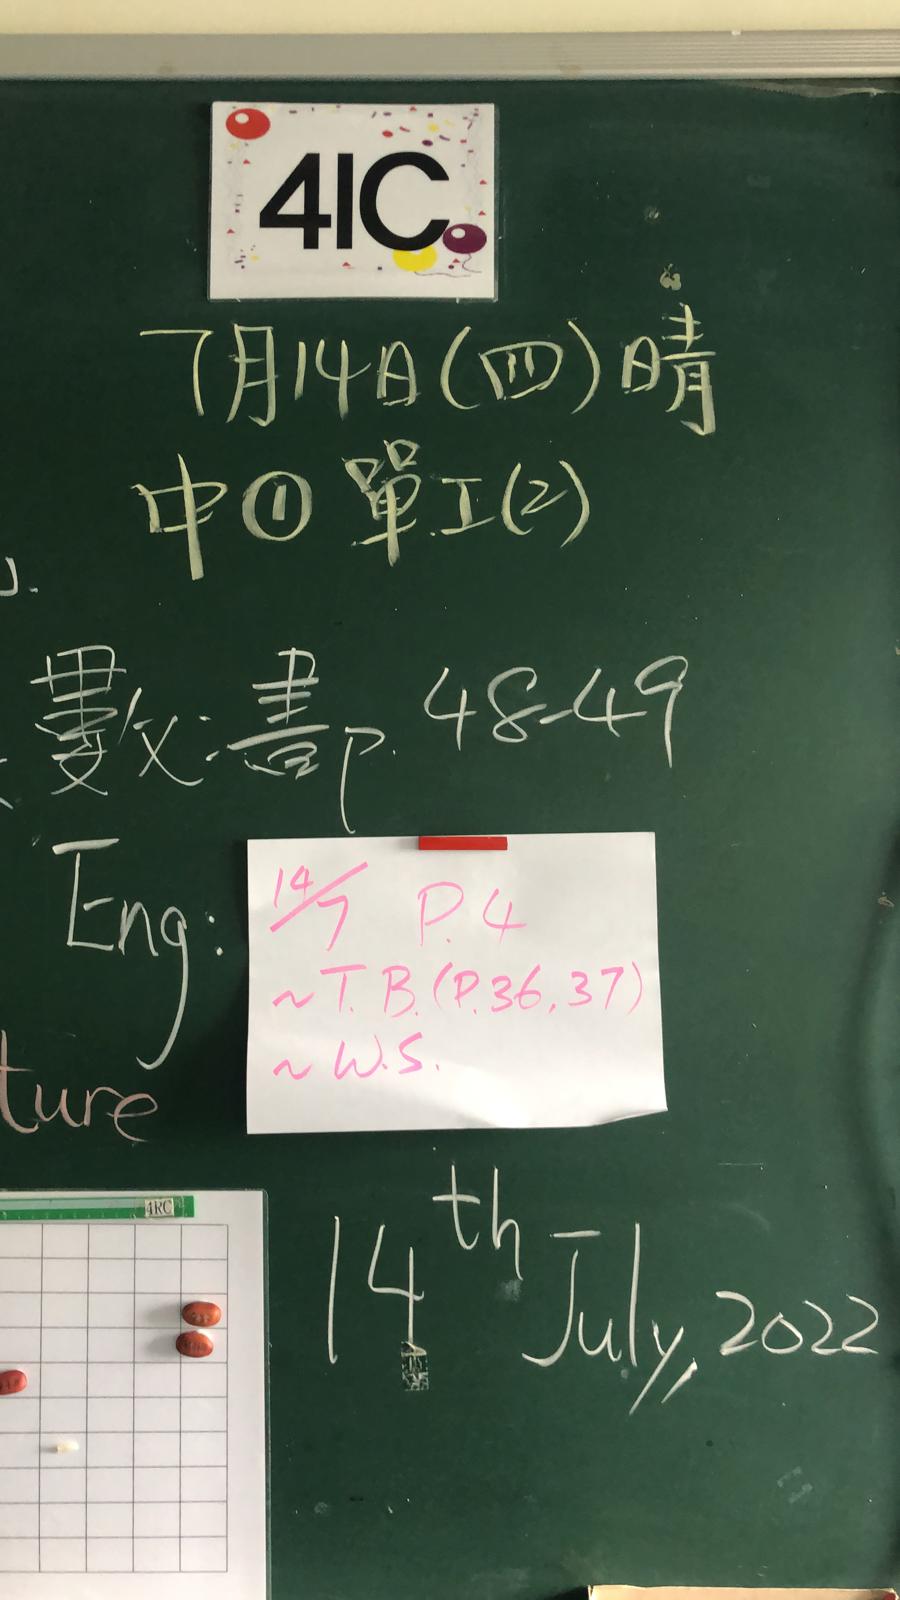 41C
7月14日(四)晴
中①單工(2)
數:書P. 48-49
Eng:
14/7 P.4
~T.B.(P.36,37)
~W.S.
ture
4RC
14th July, 2022